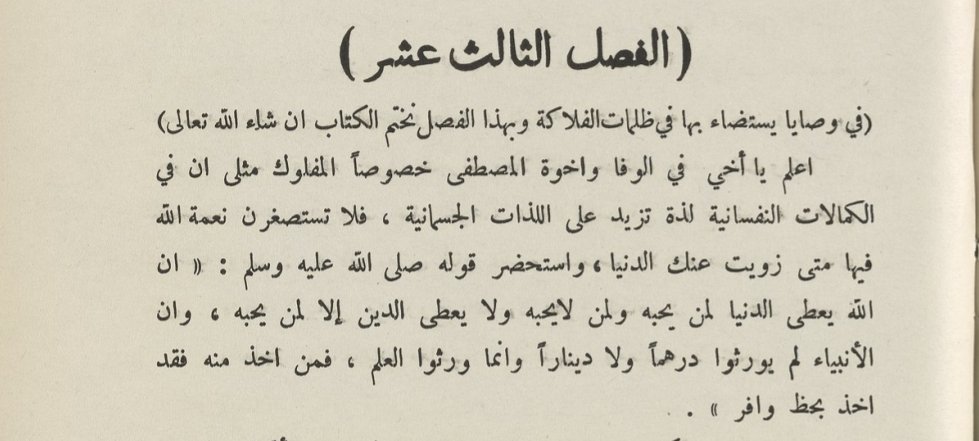 (الفصل الثالث عشر)
(في وصايا يستضاء بها في ظلمات الفلاكة وبهذا الفصل نختم الكتاب ان شاء الله تعالى)
اعلم يا أخي في الوفا واخوة المصطفى خصوصاً المفلوك مثلى ان في
الكمالات النفسانية لذة تزيد على اللذات الجسمانية ، فلا تستصغرن نعمة الله
فيها متى زويت عنك الدنيا ، واستحضر قوله صلى الله عليه وسلم : « ان
الله يعطى الدنيا لمن يحبه ولمن لايحبه ولا يعطى الدين إلا لمن يحبه ، وان
الأنبياء لم يورثوا درهماً ولا ديناراً وانما ورثوا العلم ، فمن اخذ منه فقد
اخذ بحظ وافر » .